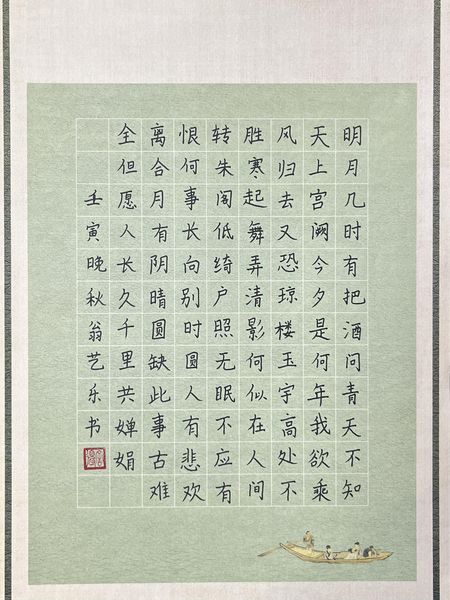 明月几时有把酒问青天不知
天上宫阙今夕是何年我欲乘
风归去又恐琼楼玉宇高处不
胜寒起舞弄清影何似在人间
转朱阁低绮户照无眠不应有
恨何事长向别时圆人有悲欢
离合月有阴晴圆缺此事古难
全但愿人长久千里共婵娟
壬寅晚秋翁艺乐书